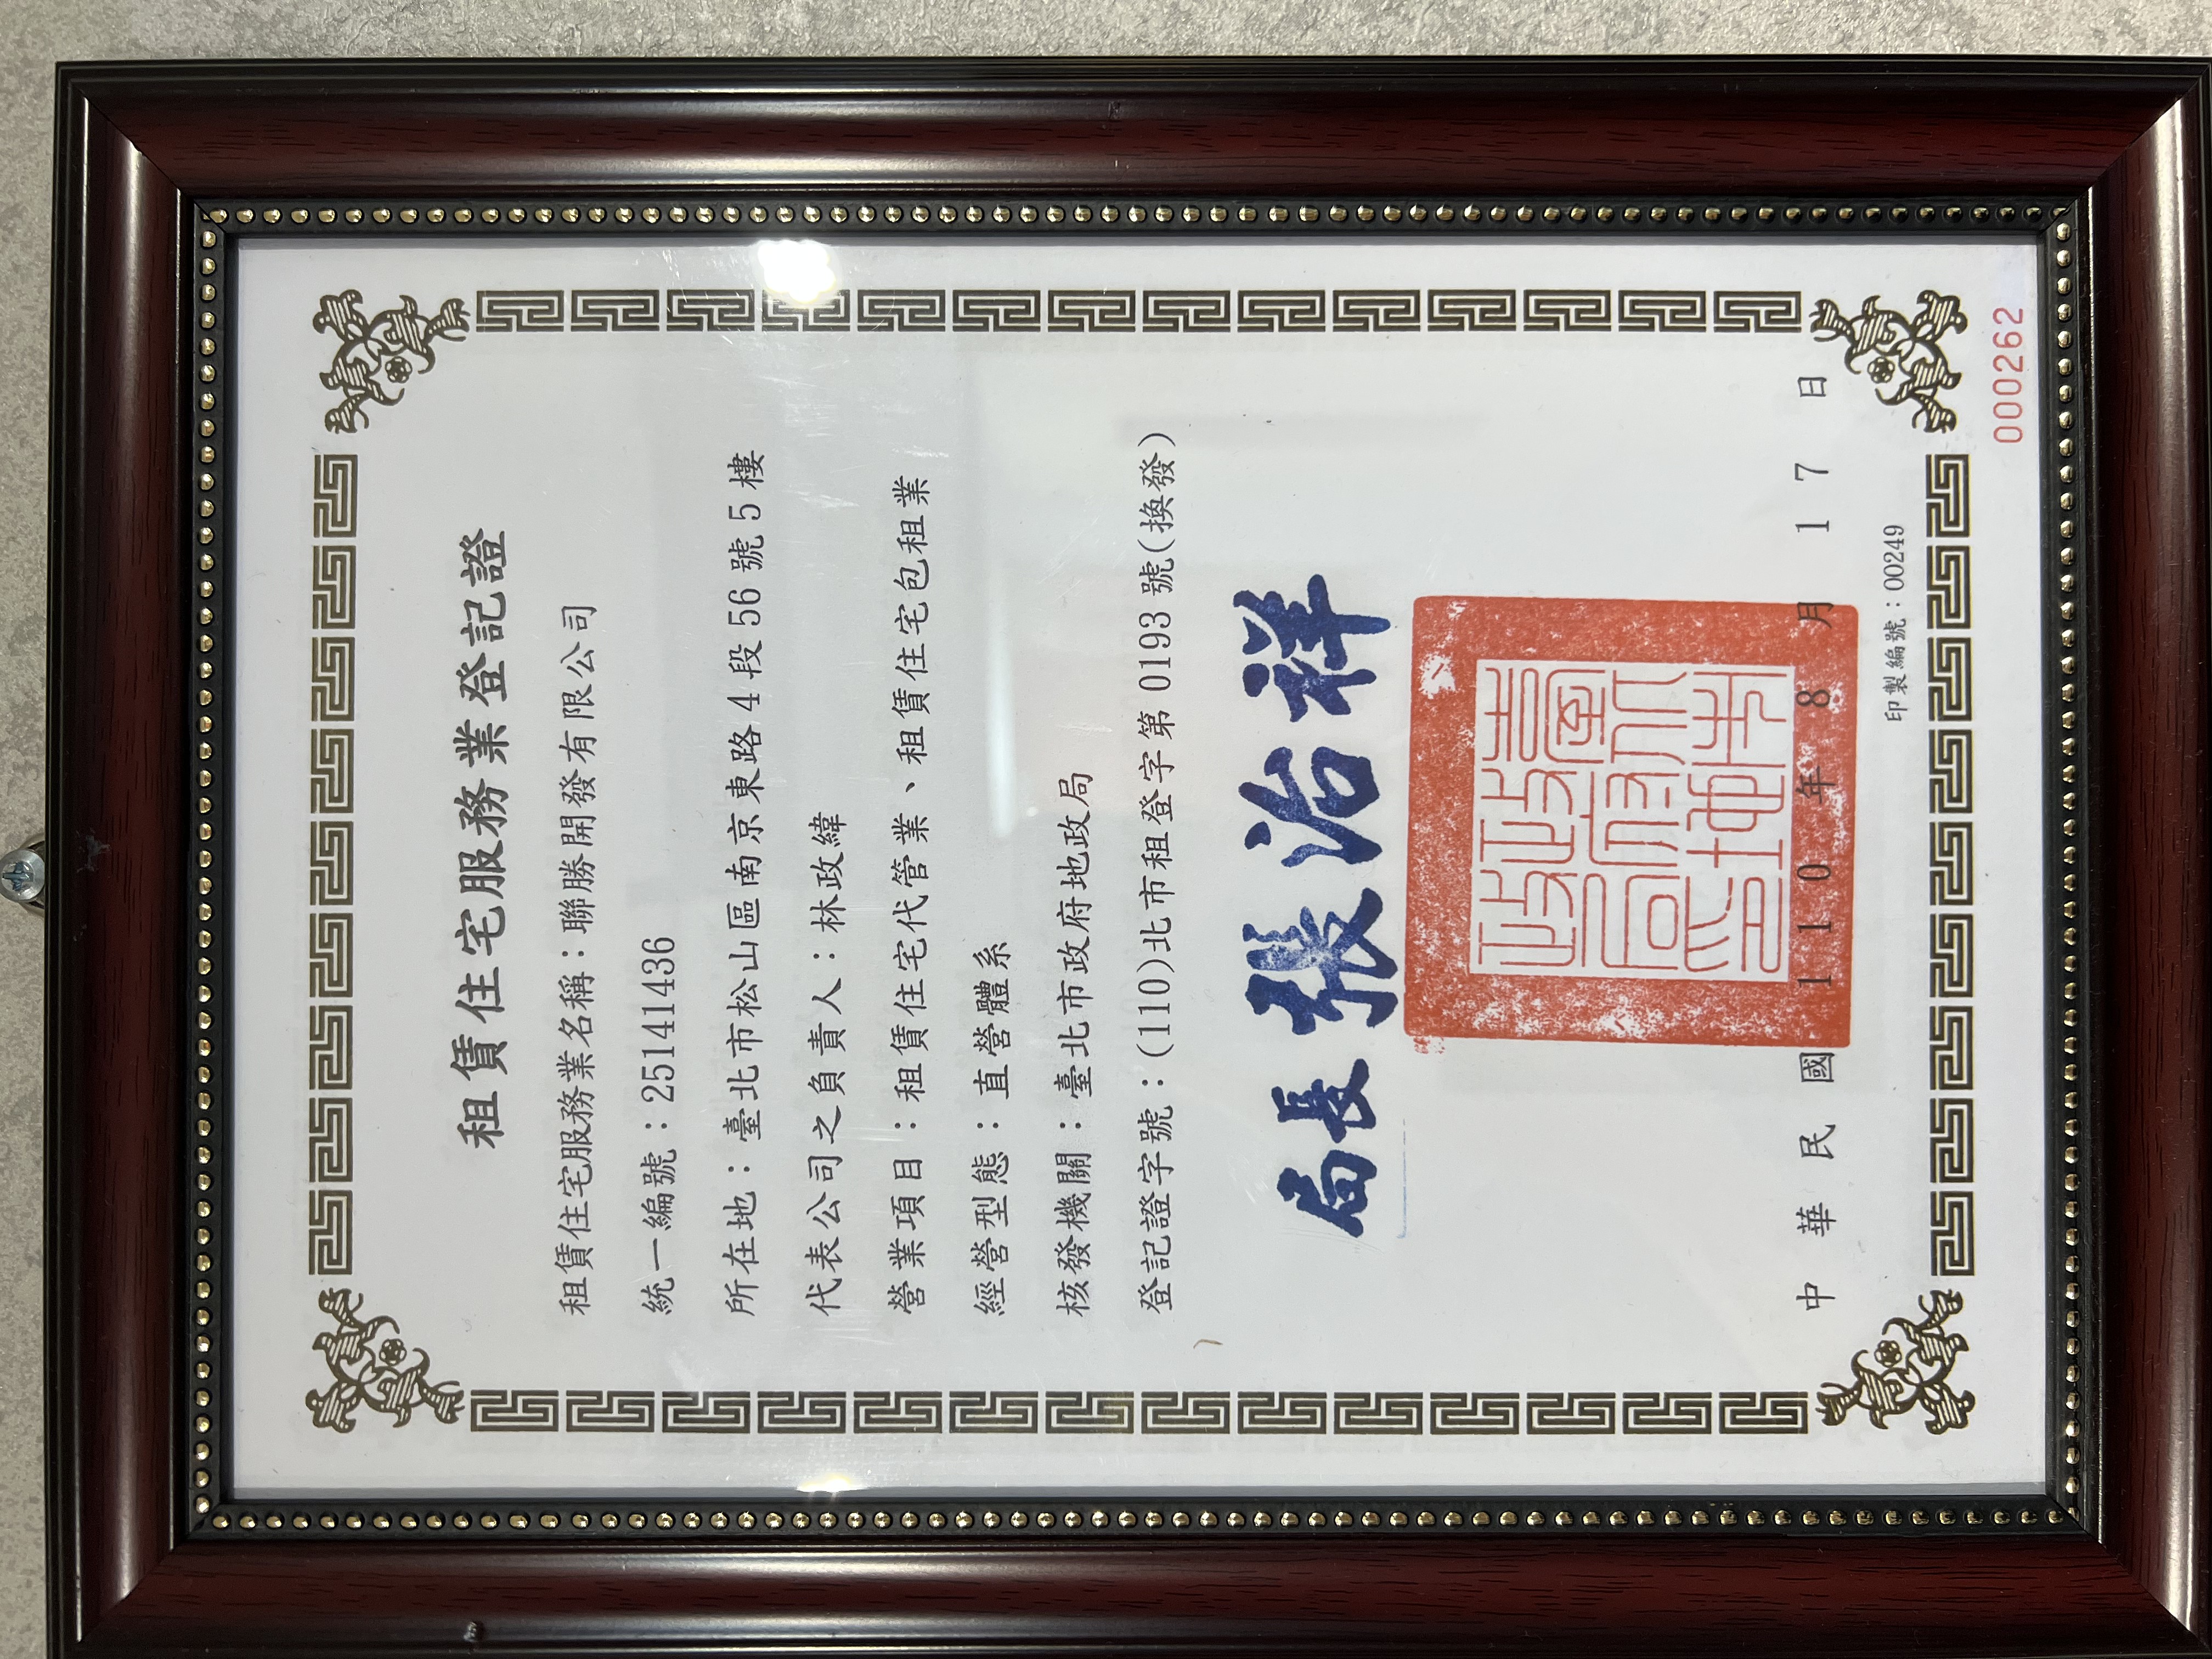 租賃住宅服務業登記證
租賃住宅服務業名稱：聯勝開發有限公司
統一編號：25141436
所在地：臺北市松山區南京東路4段56號5樓
代表公司之負責人：林政緯
營業項目：租賃住宅代管業、租賃住宅包租業
經營型態：直營體系
核發機關：臺北市政府地政局
登記證字號：(110)北市租登字第0193號(換發)
局長 張治祥
臺北市政府地政局
中華民國110年8月17日
印製編號：00249
000262